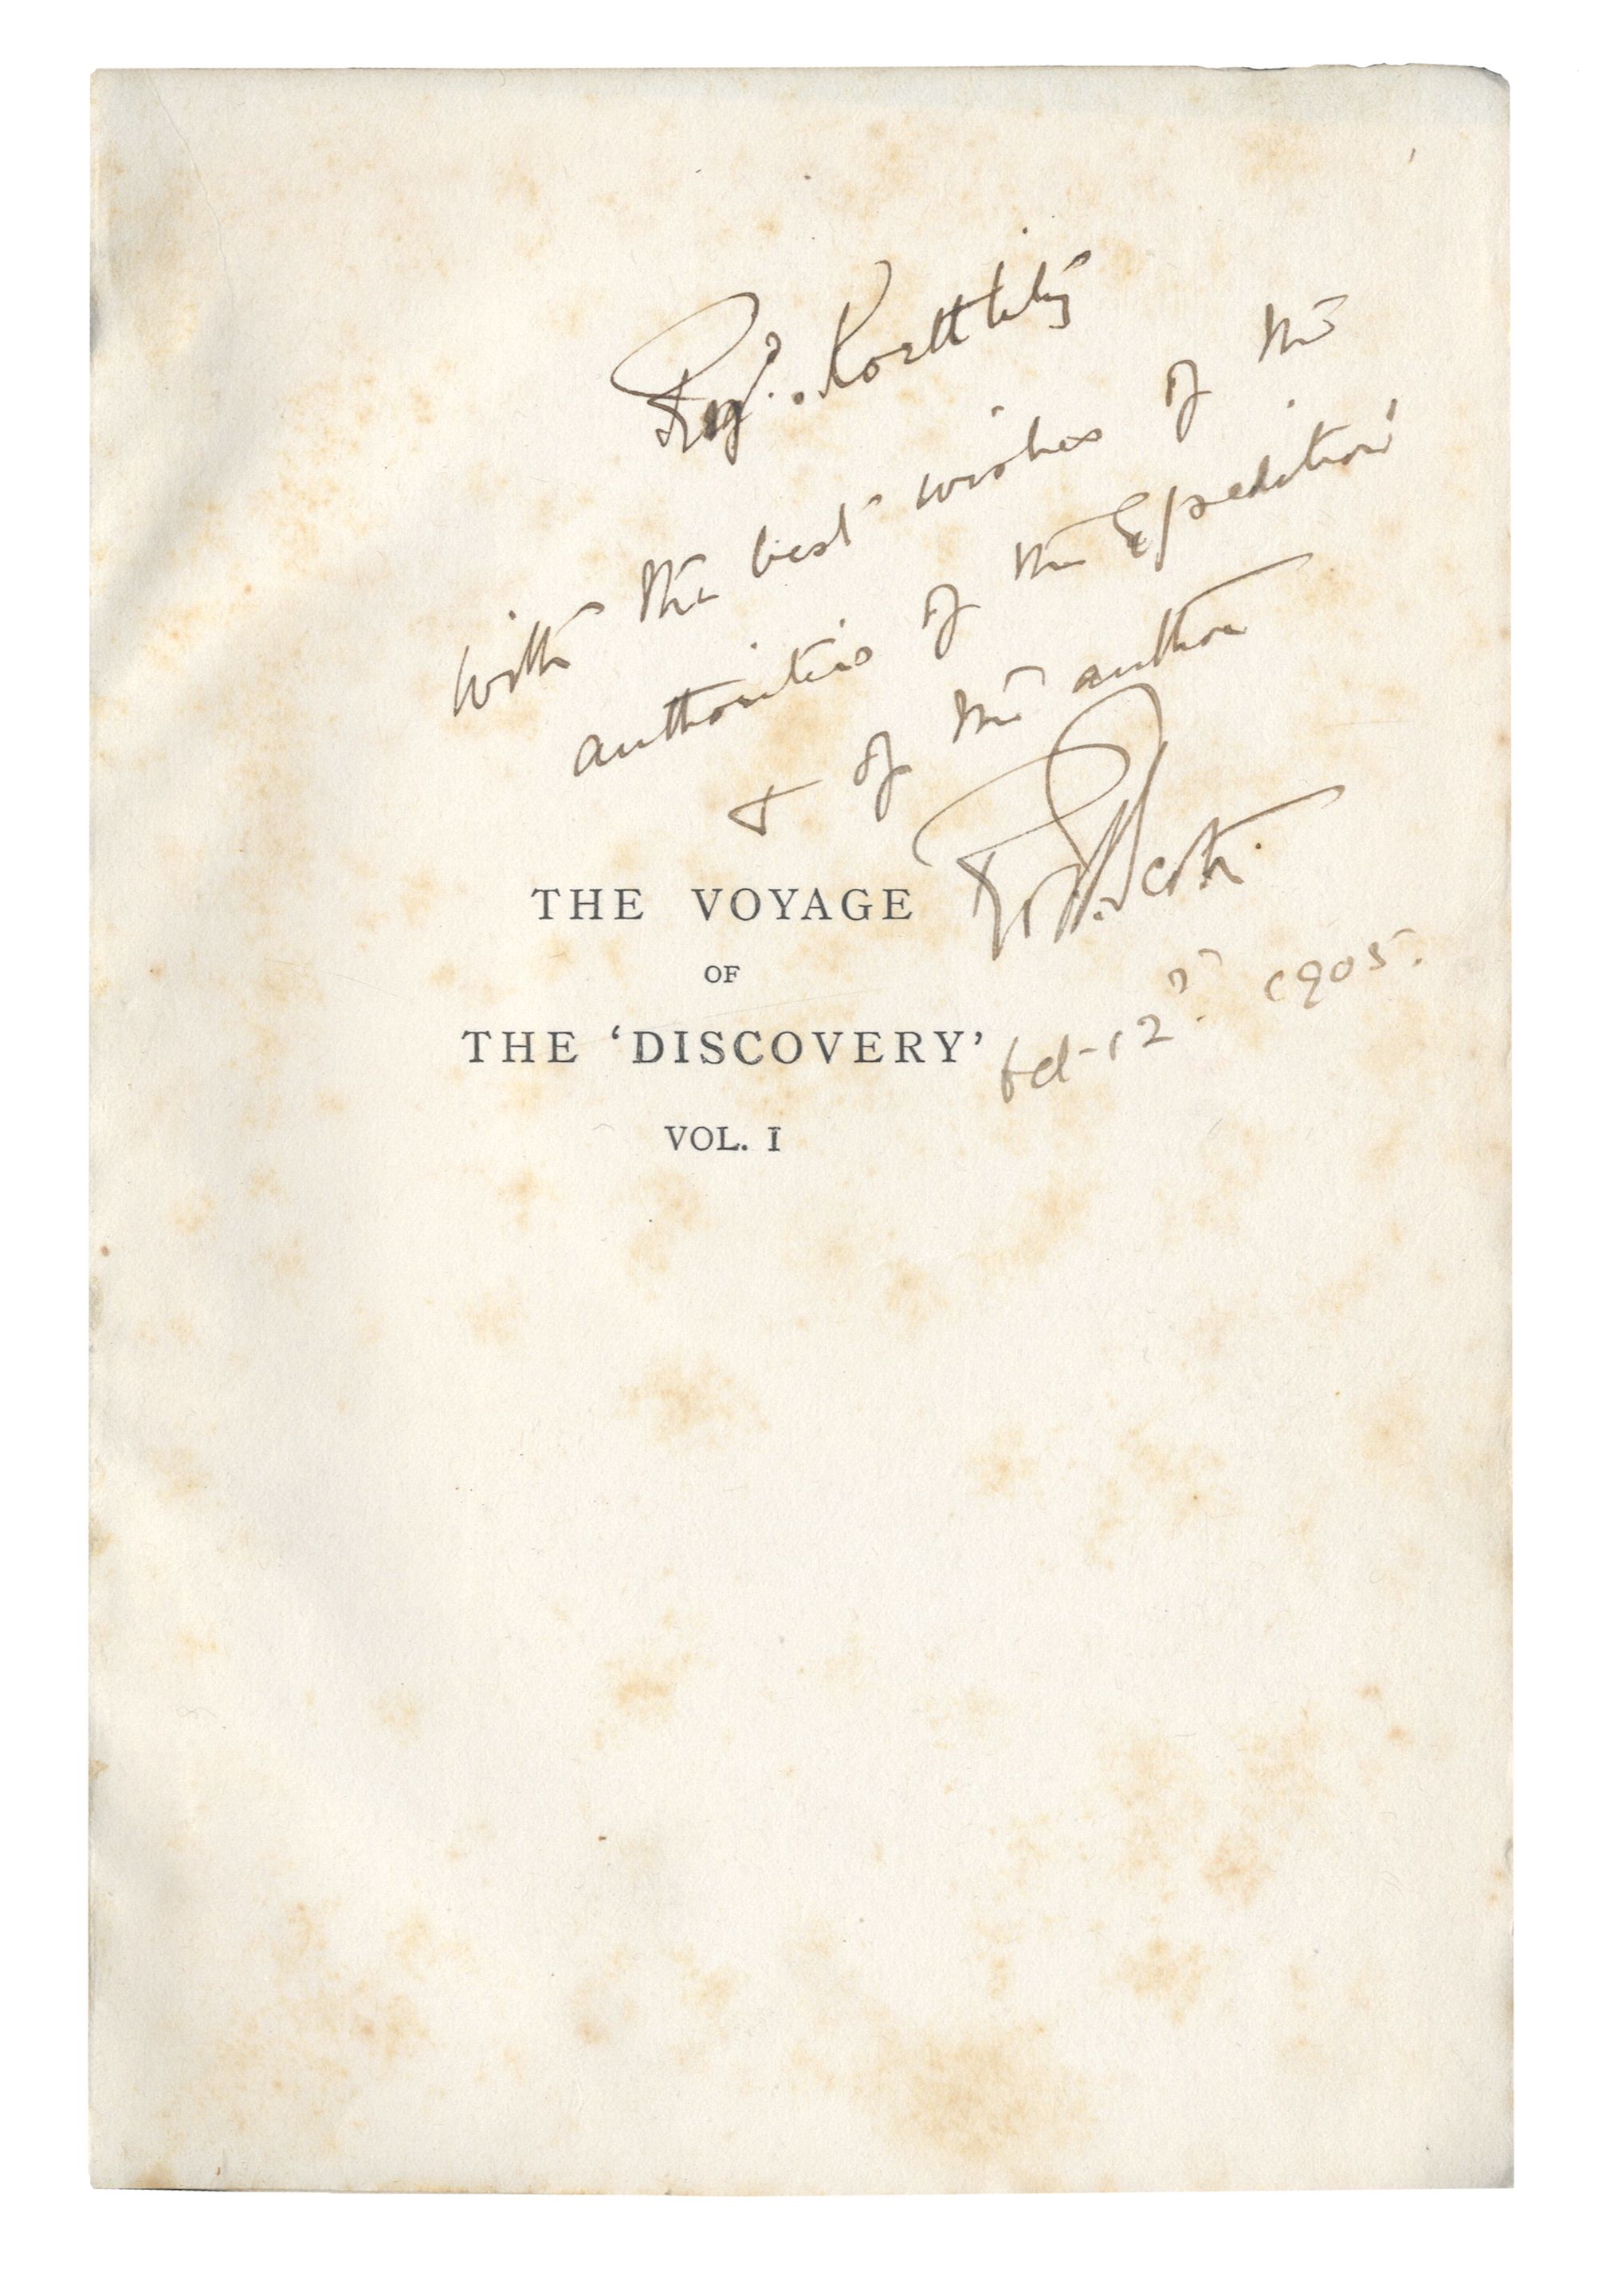 Regd. Koettlitz
with the best wishes of the
authorities of the Expedition
& of the author
R. Scott.
THE VOYAGE
OF
THE ‘DISCOVERY’
VOL. I
1905.